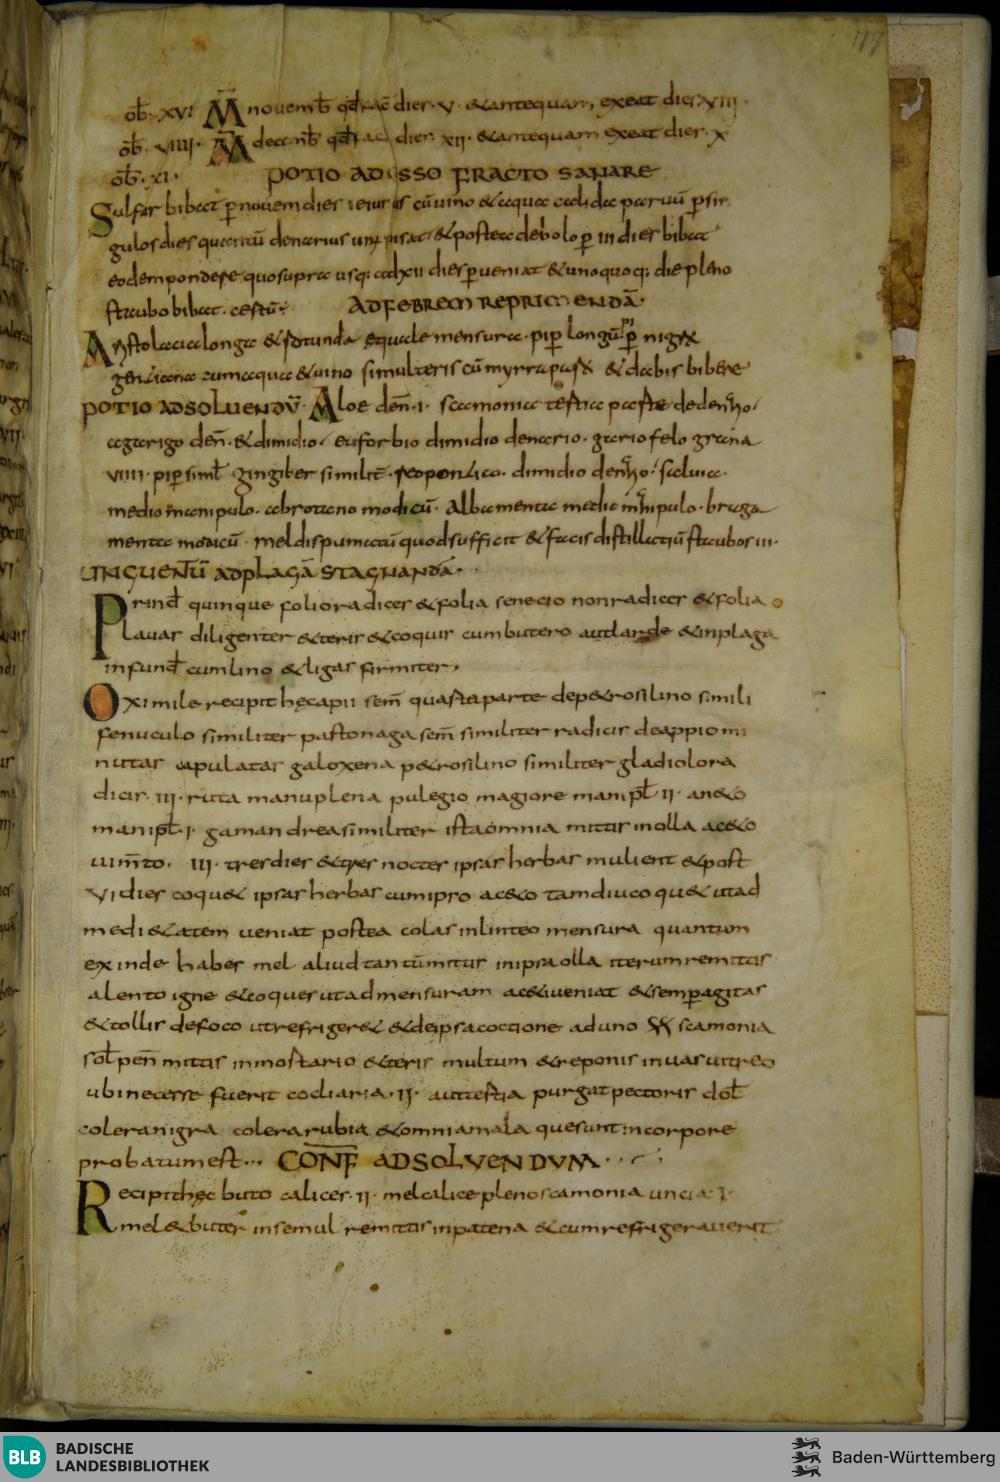 177
ob̅. XVI M̅ novemb̅ qd̅rac̅ dier. V. &antequam exeat dier. XIII.
ob̅. VIIII. M̅ decemb̅ qd̅rac dier. XII. &antequam exeat dier. X
ob̅. XI. POTIO AD OSSO FRACTO SANARE
Sulfur bibat p̲ novem dies ieiunus cu̅ vino &aqua calida parvu̅ p̲ sin
gulos dies quantu̅ denarius unus pisat &postea de volo p̲ III dies bibat
eodem pondere quo supra usq; ad XII dies p̲veniat &unoquoq; die pleno
staubo bibat.
AD FEBREM REPRIMENDA̅.
Aristolacia longa &rotunda equale mensura. pip̲ longu̅ pip̲ nigru̅
gentiana cum aqua &vino simul teris cu̅ myrra &dabis bibere
POTIO AD SOLVENDU̅. Aloe den̅. I. scamonia testia paste de denario.
agarigo den̅. &dimidio. euforbio dimidio denario. gariofelo grana
VIIII. pip̲ simil̅ gingiber similit̅. reopontico. dimidio denario. salvia.
medio manipulo. abrotano modicu̅. Alba menta medio manipulo. braga
menta modicu̅. mel dispumatu̅ quod sufficit &facis distillatiu̅ staubos III.
UNGUENTU̅ AD PLAGA̅ STAGNANDA̅.
Prind̅ quinque folio radices &folia senecio non radices &folia
lavas diligenter &teris &coquis cum butero aut larde &in plaga
infund̅ cum lino &ligas firmiter.
Oximile recipit hęc apii sem̅ quarta parte de petrosilino simili
fenuculo similiter pastonaga sem̅ similiter radicis de appio mi
nutas capulatas galoxena petrosilino similiter gladiolo ra
dicis. III. ruta manuplena pulegio magiore manipl̅ II. aneto
manipl̅. I. gamandrea similiter ista omnia mittis in olla aceto
III. tres dies &tres noctes ipsas herbas mulient &post
VI dies coquet ipsas herbas cum ipro aceto tamdiu coquet ut ad
medietatem veniat postea colas in linteo mensura quantum
exinde habes mel aliud tantu̅ mittis in ipsa olla iterum remittis
a lento igne &coques ut ad mensuram aceti veniat &semp̲ agitas
&tollis de foco ut refrigeret &de ipsa coctione ad uno scamonia
sol̅ pen̅ mittis in mostario &teris multum &reponis in vas vitreo
ubi necesse fuerit cocliaria. II. aut testia purgat pectoris dol̅
colera nigra colera rubia &omnia mala que sunt in corpore
probatum est... CONF̅ AD SOLVENDUM.
Recipit hęc buto calices. II. mel calice pleno scamonia uncia. I.
mel &buter insemul remittis in patena &cum refrigeraverit
BLB BADISCHE
LANDESBIBLIOTHEK
Baden-Württemberg